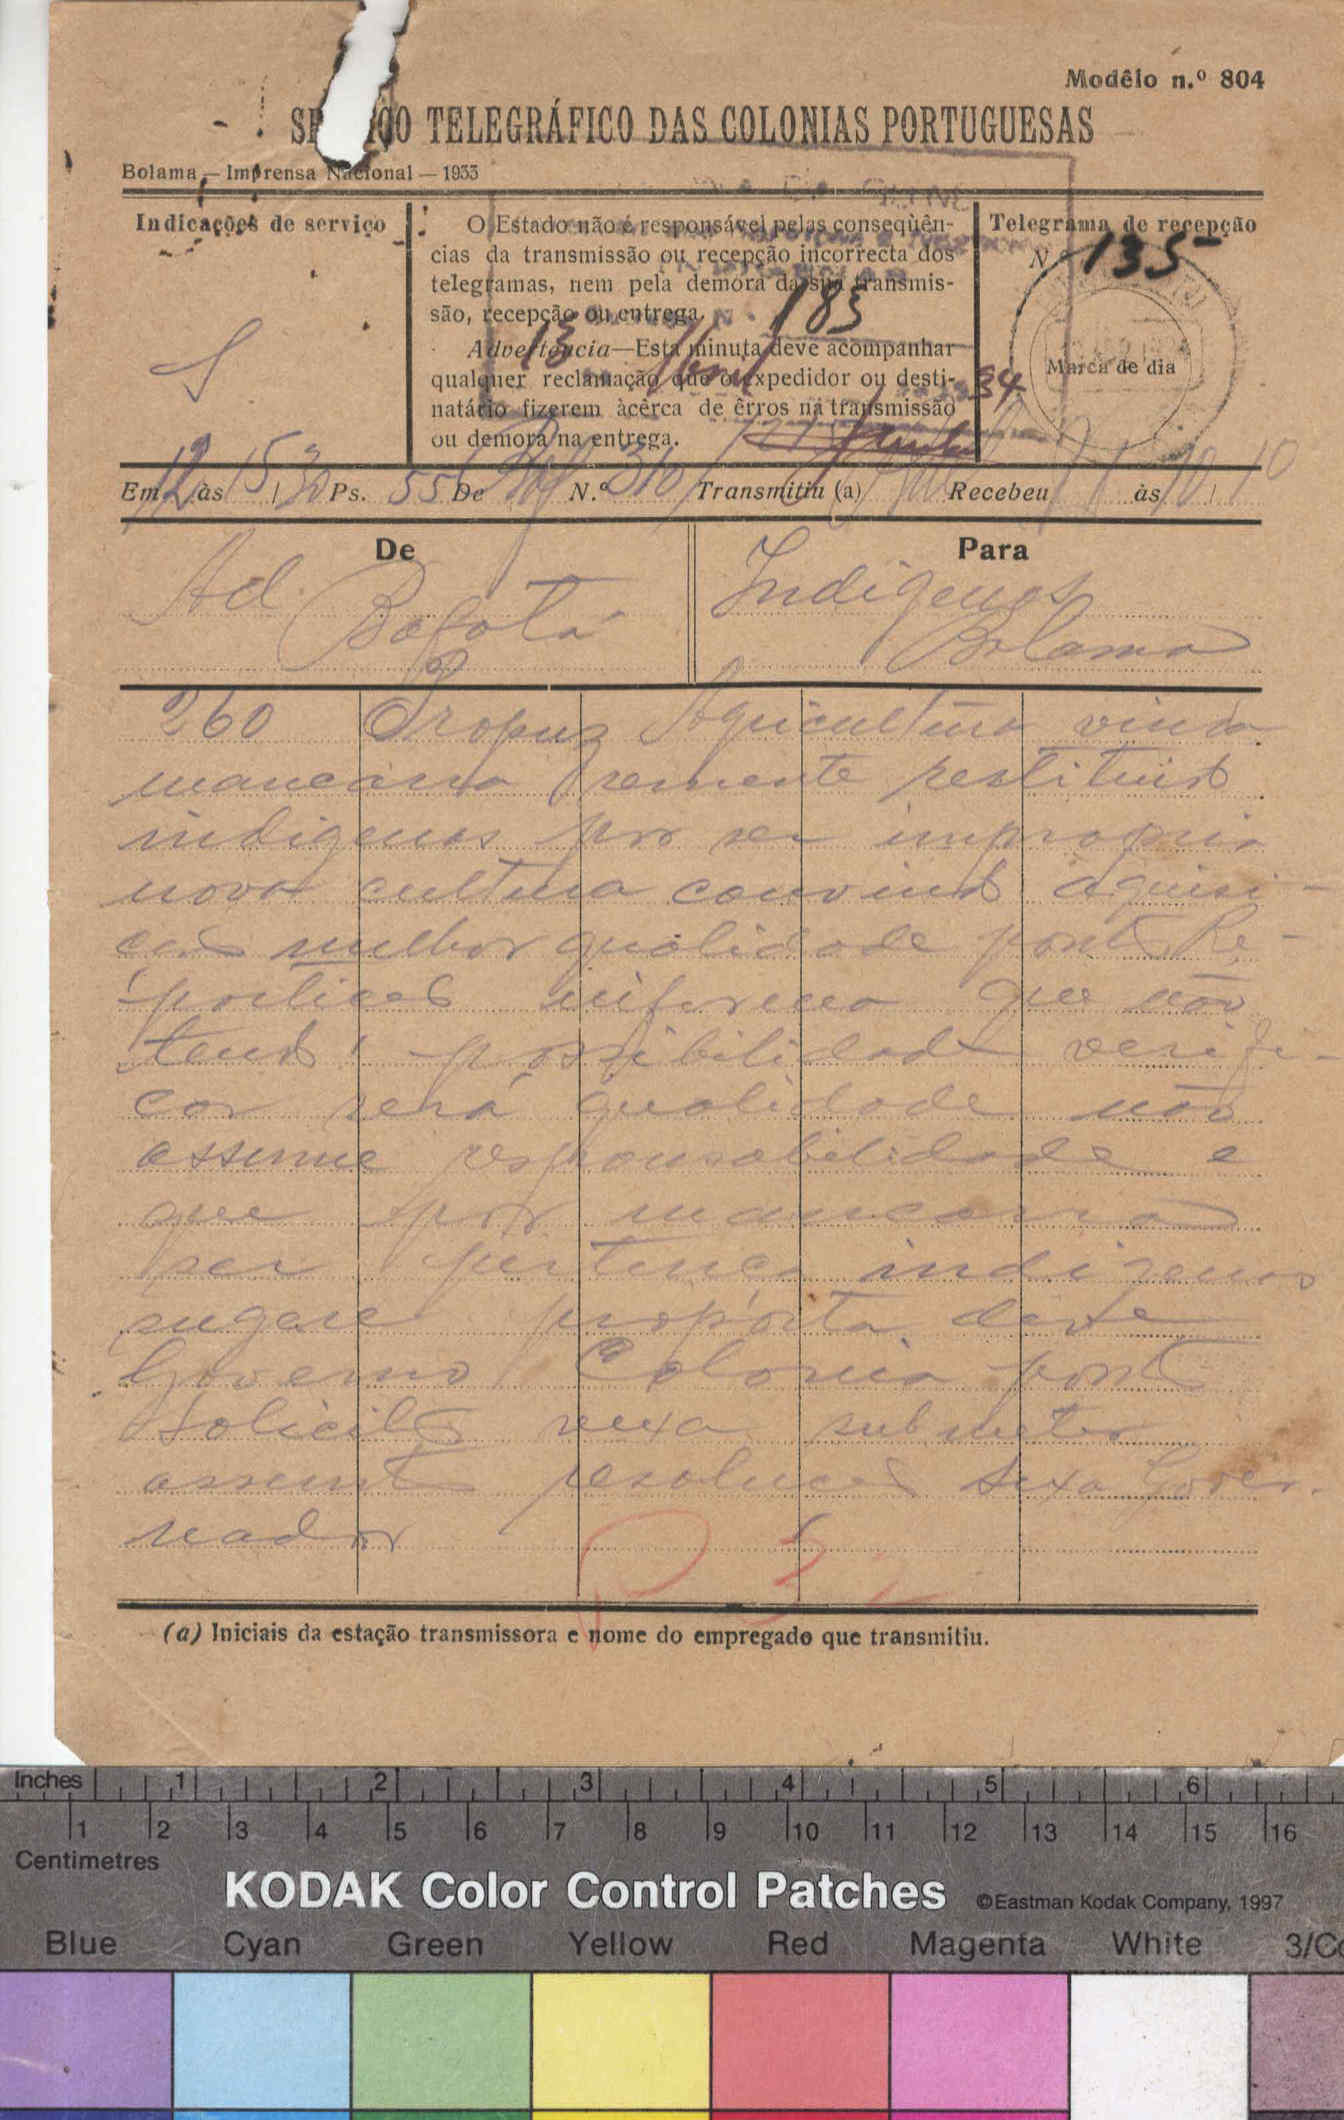 Modêlo n.º 804
SERVIÇO TELEGRÁFICO DAS COLONIAS PORTUGUESAS
Bolama — Imprensa Nacional — 1933
Indicações de serviço
S
O Estado não é responsável pelas conseqùên-
cias da transmissão ou recepção incorrecta dos
telegramas, nem pela demora da sua transmis-
são, recepção ou entrega.
183
Advertência—Esta minuta deve acompanhar
qualquer reclamação que o expedidor ou desti-
natário fizerem àcêrca de êrros na transmissão
ou demora na entrega.
13 Abril 34
Telegrama de recepção
N.º 135
Marca de dia
Em 12 às 15 30 Ps. 55 De N.º 310 Transmitiu (a) Recebeu às 10 10
De
Ad. Bafatá
Para
Indigenas
Bolama
260 Propuz Agricultura vinda
mancarra semente restituido
indigenas por ser impropria
nova cultura convindo aquisi-
ção melhor qualidade ponto Re-
partição informa que não
tendo possibilidade verifi-
car será qualidade não
assume responsabilidade e
que por mancarra
ser pertença indigenas
sugere proposta deve
Governo Colonia ponto
Solicito vexa submeter
assunto resolução sexa Gover-
nador
(a) Iniciais da estação transmissora e nome do empregado que transmitiu.
Inches 1 2 3 4 5 6
1 2 3 4 5 6 7 8 9 10 11 12 13 14 15 16
Centimetres
KODAK Color Control Patches ©Eastman Kodak Company, 1997
Blue Cyan Green Yellow Red Magenta White 3/Co